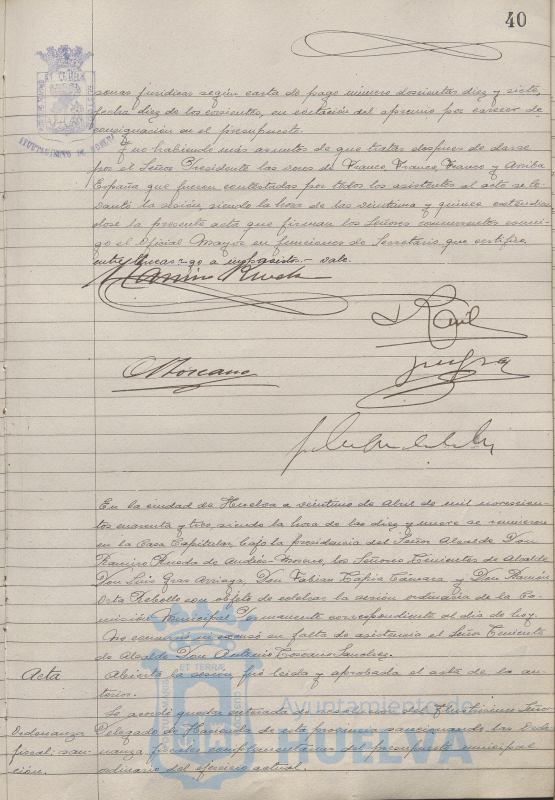 40
sonas jurídicas según carta de pago número doscientos diez y siete,
fecha diez de los corrientes, en evitación del apremio por carecer de
consignación en el presupuesto.
Y no habiendo más asuntos de que tratar despues de darse
por el Señor Presidente las voces de Franco, Franco, Franco y Arriba
España que fueron contestadas por todos los asistentes el acto se le-
vantó la sesión, siendo la hora de las veintiuna y quince extendien-
dose la presente acta que firman los Señores concurrentes conmi-
go el Oficial Mayor en funciones de Secretario, que certifico.
entre lineas - vale.
Ramiro Rueda
Toscano
En la ciudad de Huelva a veintiuno de Abril de mil novecien-
tos cuarenta y tres, siendo la hora de las diez y nueve se reunieron
en la Casa Capitular, bajo la presidencia del Señor Alcalde Don
Ramiro Rueda de Andrés-Moreno, los Señores Tenientes de Alcalde
Don Luis Gras Arriaga, Don Fabian Tapia Cámara y Don Ramón
Orta Rebollo con objeto de celebrar la sesión ordinaria de la Co-
misión Municipal Permanente correspondiente al día de hoy.
No concurrió ni excusó su falta de asistencia el Señor Teniente
de Alcalde Don Antonio Toscano Sanchez.
Acta
Abierta la sesión fué leida y aprobada el acta de la an-
terior.
Ordenanza
fiscal, san-
ción.
Se acordó quedar enterada de resolución del Ilustrísimo Señor
Delegado de Hacienda de esta provincia sancionando las Orde-
nanzas fiscales complementarias del presupuesto municipal
ordinario del ejercicio actual.
Ayuntamiento de
HUELVA